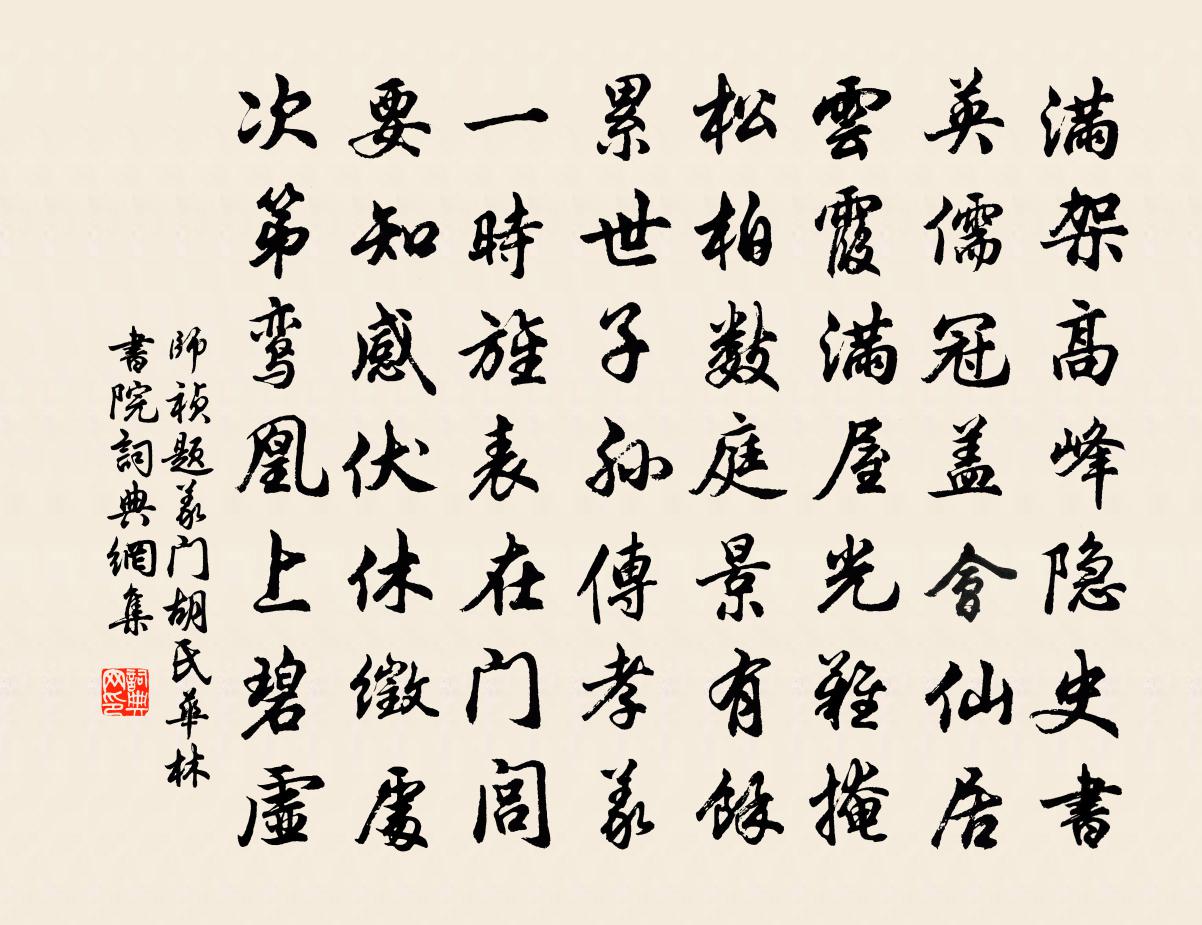 滿架高峰隐史書
英儒冠盖會仙居
雲霞滿屋光難掩
松柏數庭景有餘
累世子孙傳孝義
一時旌表在门闾
要知感伏休徵處
次第鸾凰上碧虛
師祯题義门胡氏華林
書院詞典網集
詞典网印